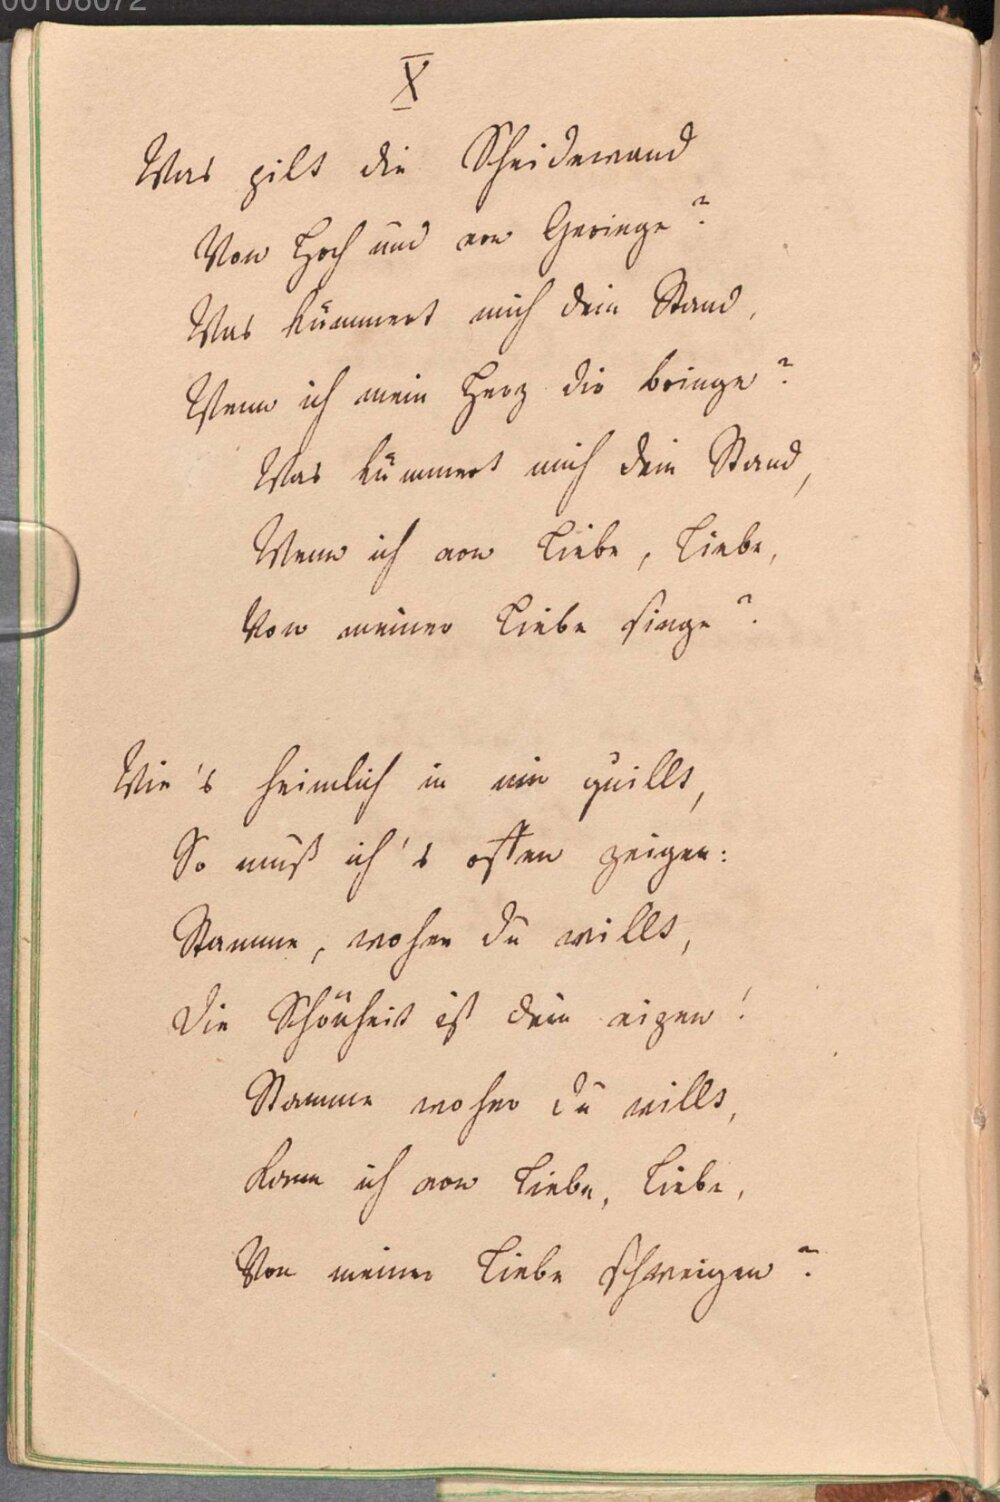 00106072
X
Was gilt die Scheidewand
Von Hoch und von Geringe?
Was kümmert mich dein Stand,
Wenn ich mein Herz dir bringe?
Was kümmert mich dein Stand,
Wenn ich von Liebe, Liebe,
Von meiner Liebe singe?
Wie's heimlich in mir quillt,
So muß ich's offen zeigen:
Stamme, woher du willst,
Die Schönheit ist dein eigen!
Stamme woher du willst,
Kann ich von Liebe, Liebe,
Von meiner Liebe schweigen?